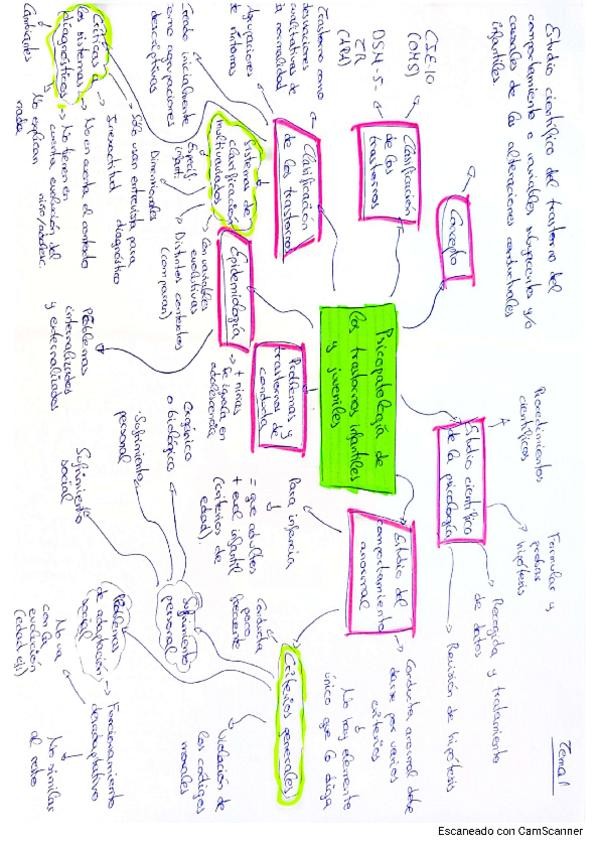 Tema 1
Estudio científico del trastorno del
comportamiento o variables subyacentes y/o
causales de las alteraciones conductuales
infantiles
Concepto
CIE-10
(OMS)
DSM-5-
TR
(APA)
Clasificación
de los
trastornos
Trastorno como
desviaciones
cualitativas de
la normalidad
Agrupaciones
de síntomas
Clasificación
de los trastornos
Creado inicialmente
como agrupaciones
descriptivas
Sistemas de
clasificación
multivariados
Específ.
infant.
Dimensionales
Con variables
evolutivas
Distintos contextos
(comparan)
Críticas a
los sistemas
diagnósticos
Cambiantes
No explican
nada
Solo usan entrevista para
diagnóstico
Inexactitud
No en cuenta el contexto
No tienen en
cuenta evolución del
niño/adolesc.
Epidemiología
+ niños
Se iguala en
adolescencia
Problemas y
trastornos de
conducta
Problemas
internalizados
y externalizados
Psicopatología de
los trastornos infantiles
y juveniles
Estudio científico
de la psicología
Procedimientos
científicos
Formular y
probar
hipótesis
Recogida y tratamiento
de datos
Revisión de hipótesis
Estudio del
comportamiento
anormal
Para infancia
= que adultos
+ eval. infantil
(criterios de
edad)
Conducta anormal debe
darse por varios
criterios
No hay elemento
único que lo diga
Criterios generales
Conducta
poco
frecuente
Violación de
los códigos
morales
Sufrimiento
personal
Orgánico
o biológico
Sufrimiento
personal
Sufrimiento
social
Problemas
de adaptación
social
No va
con la
evolución
(edad ej.)
Funcionamiento
desadaptativo
No similar
al resto
Escaneado con CamScanner